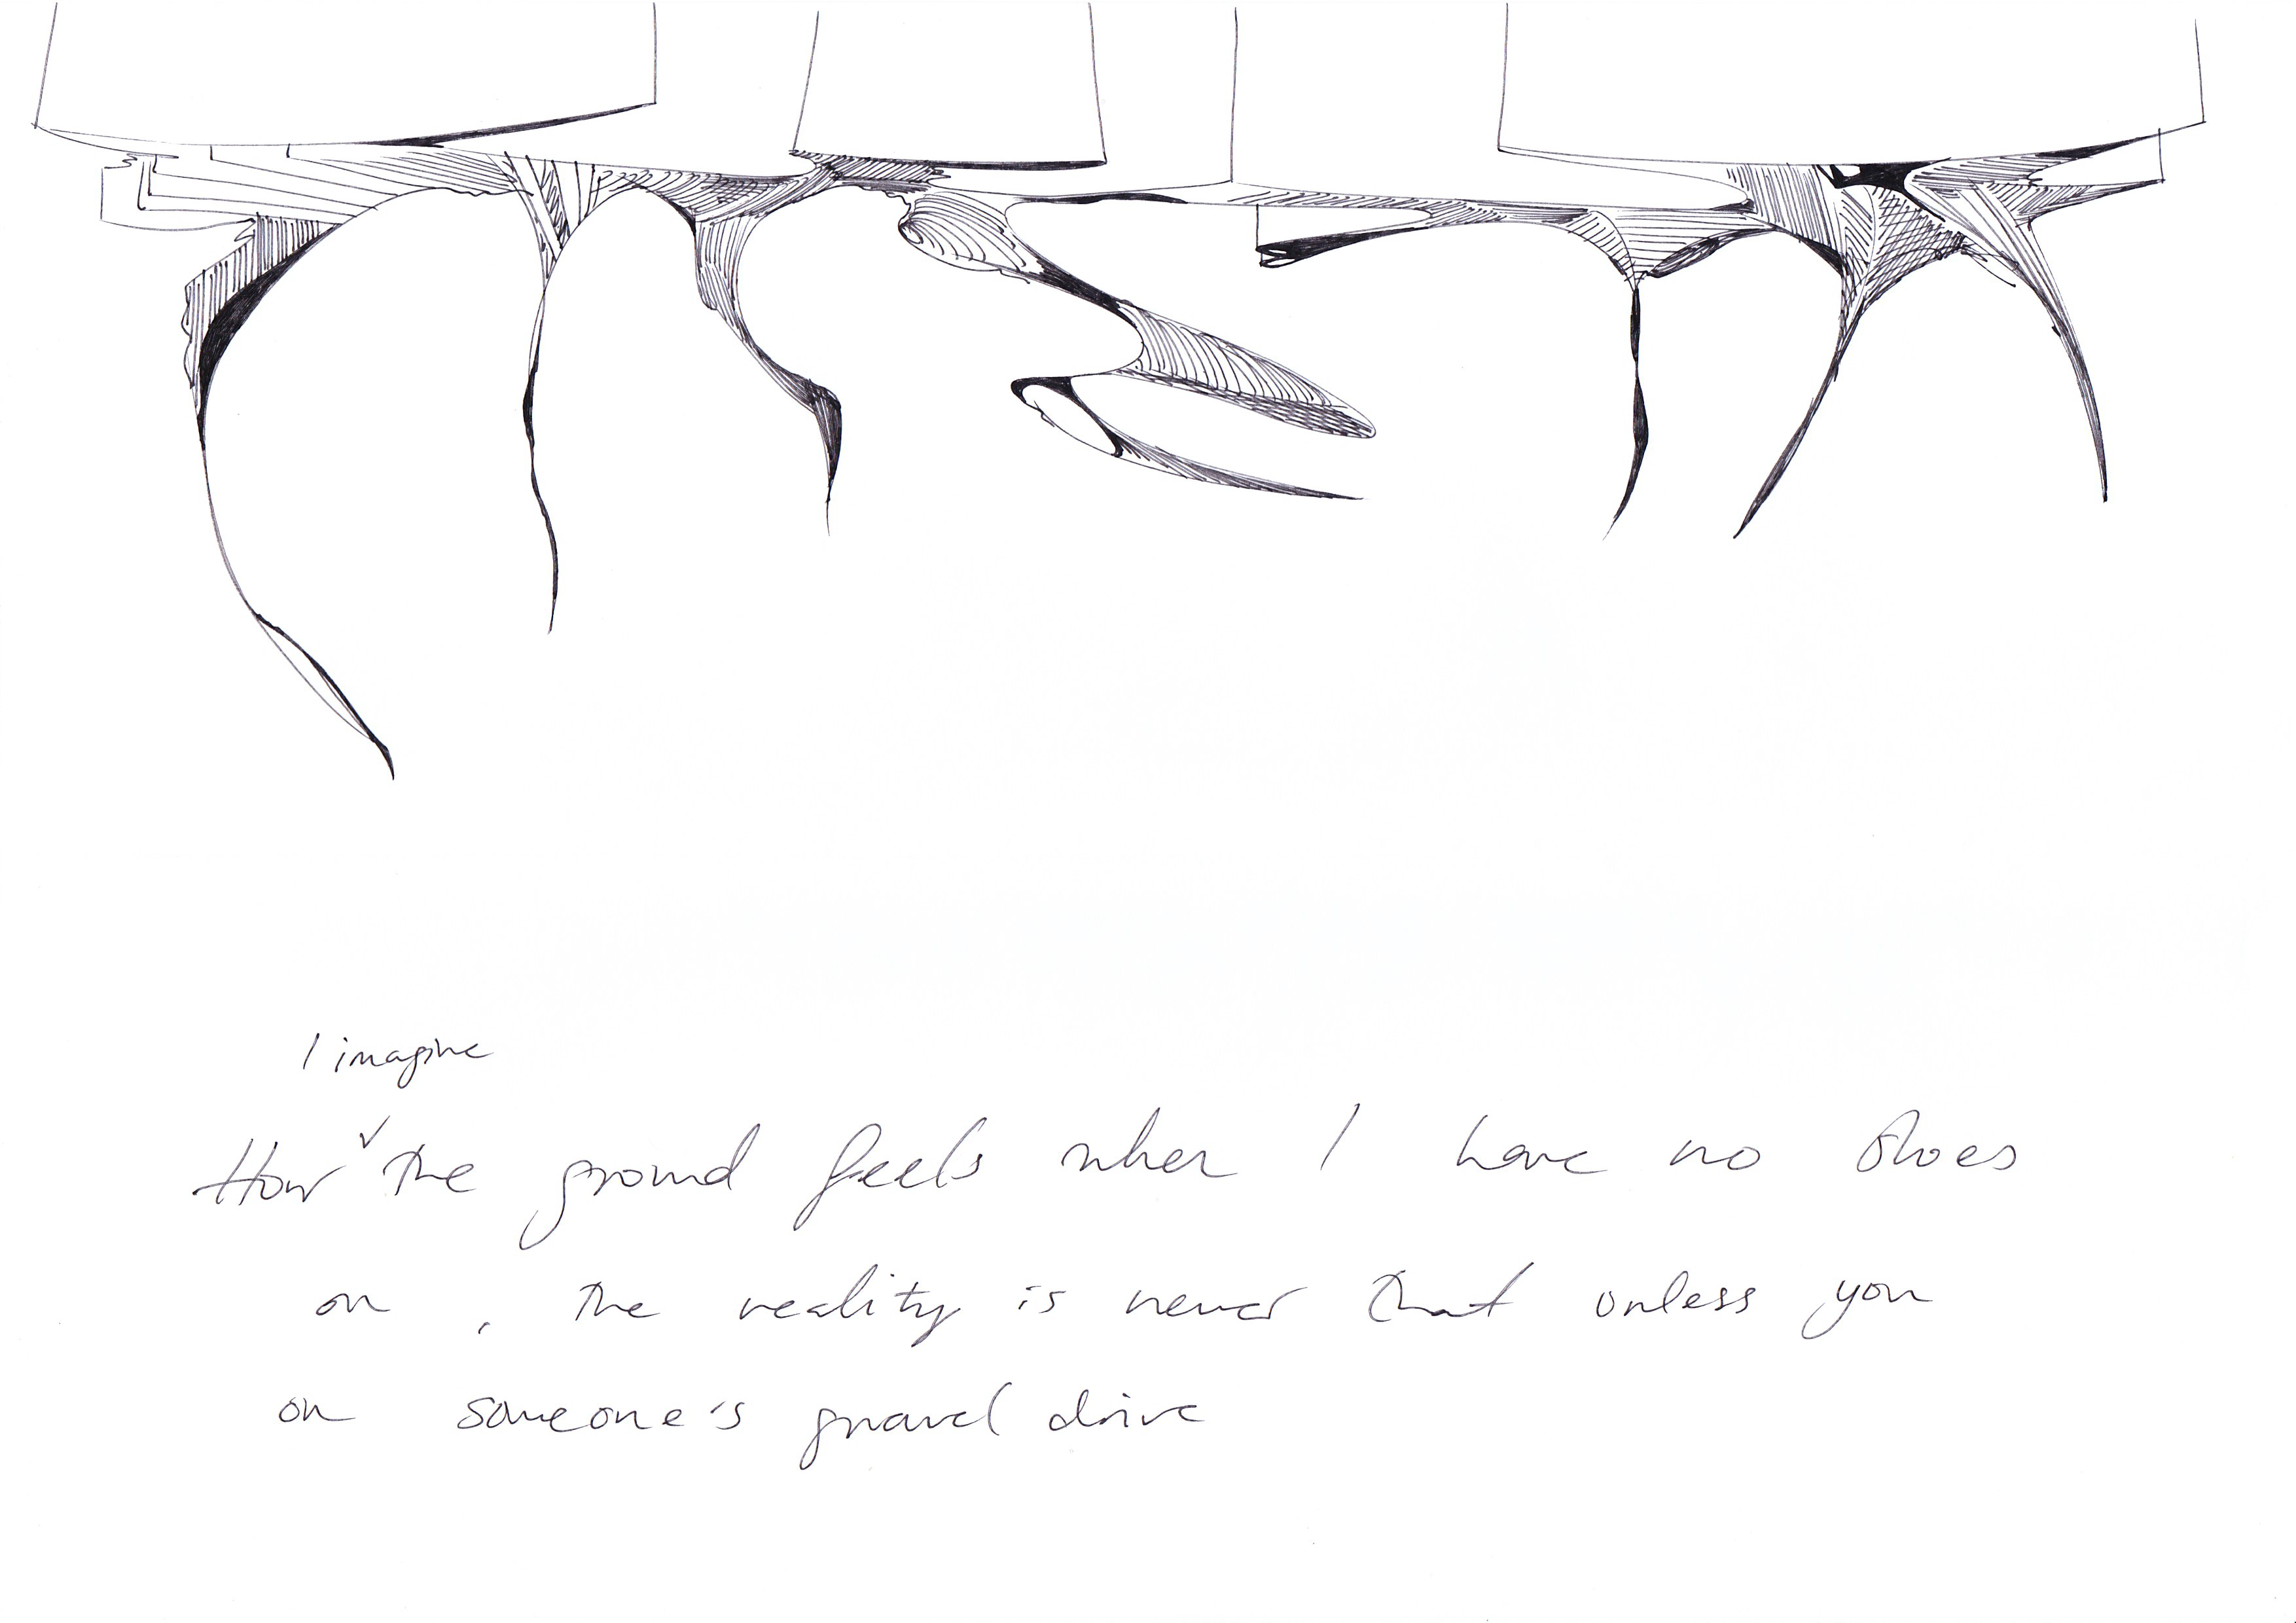 I imagine
How ✓ the ground feels when I have no shoes
on , the reality is never that unless you
on someone's gravel drive